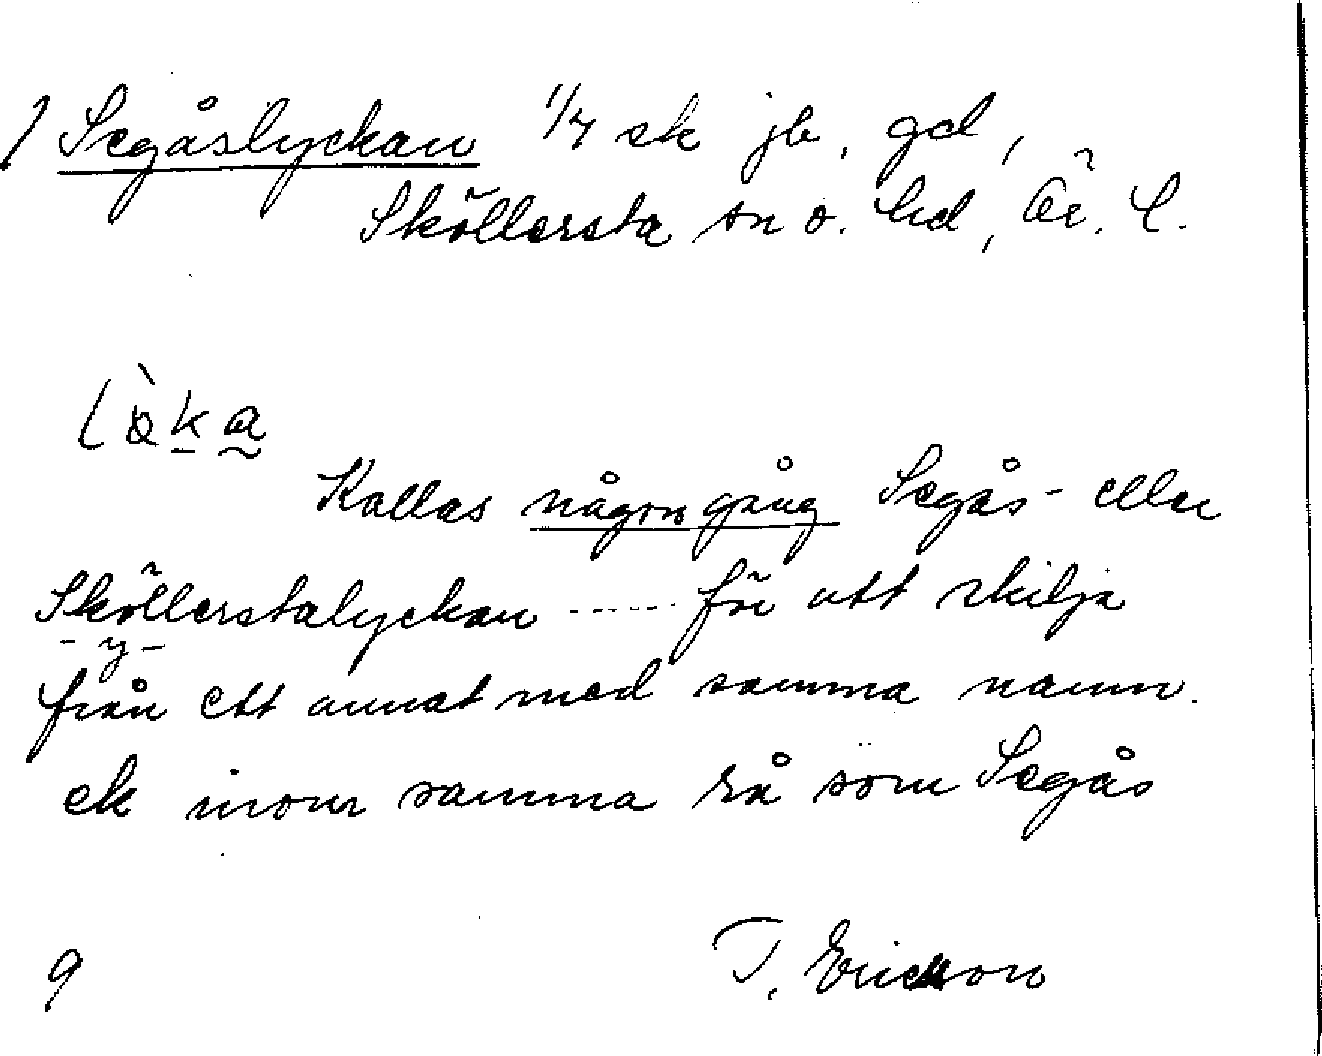 1 Segåslyckan 1/4 sk jb, gd,
Sköllersta sn o. hd, Ör. l.
Kallas någon gång Segås- eller
Sköllerstalyckan ------ för att skilja
- y -
från ett annat med samma namn.
ek inom samma rå som Segås
9
T. Ericsson